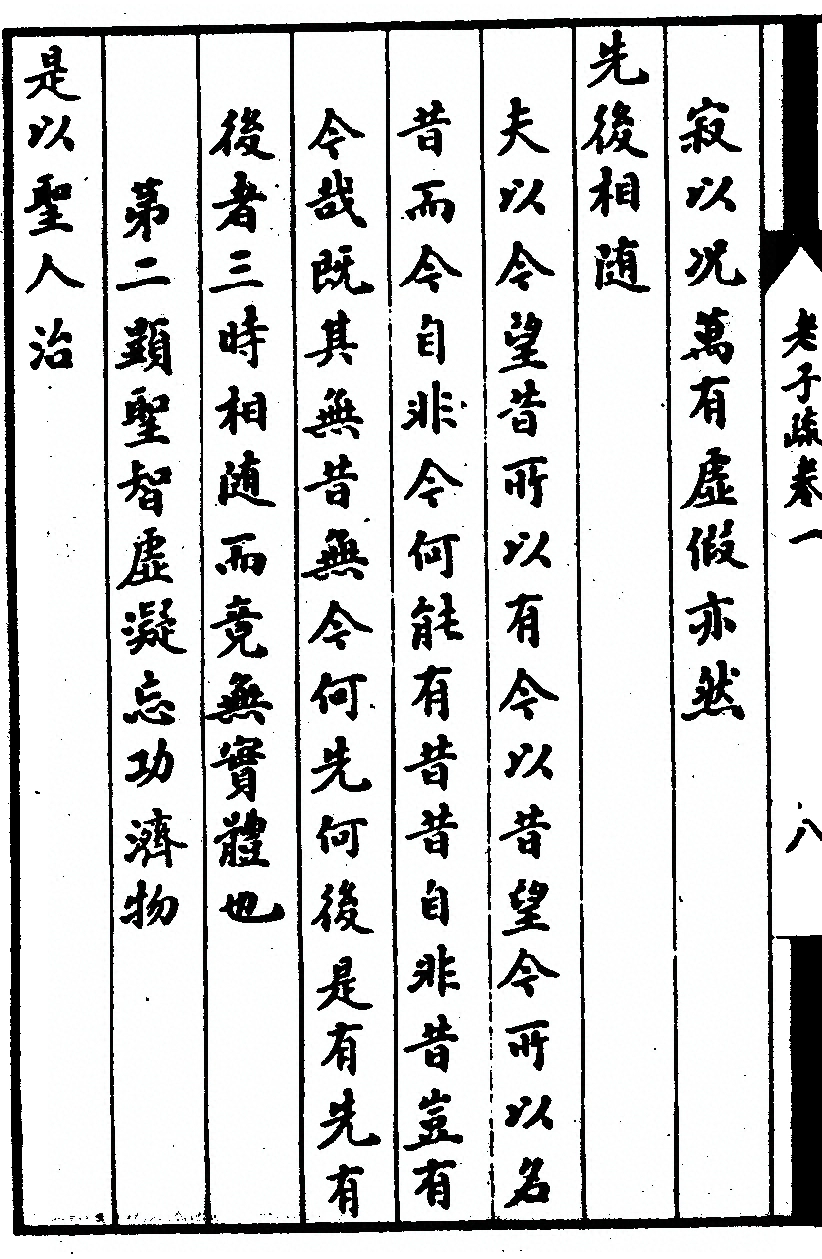 老子疏卷一
八
寂以况萬有虛假亦然
先後相随
夫以今望昔所以有今以昔望今所以名
昔而今自非今何能有昔昔自非昔豈有
今哉既其無昔無今何先何後是有先有
後者三時相随而竟無實體也
第二顯聖智虛凝忘功濟物
是以聖人治